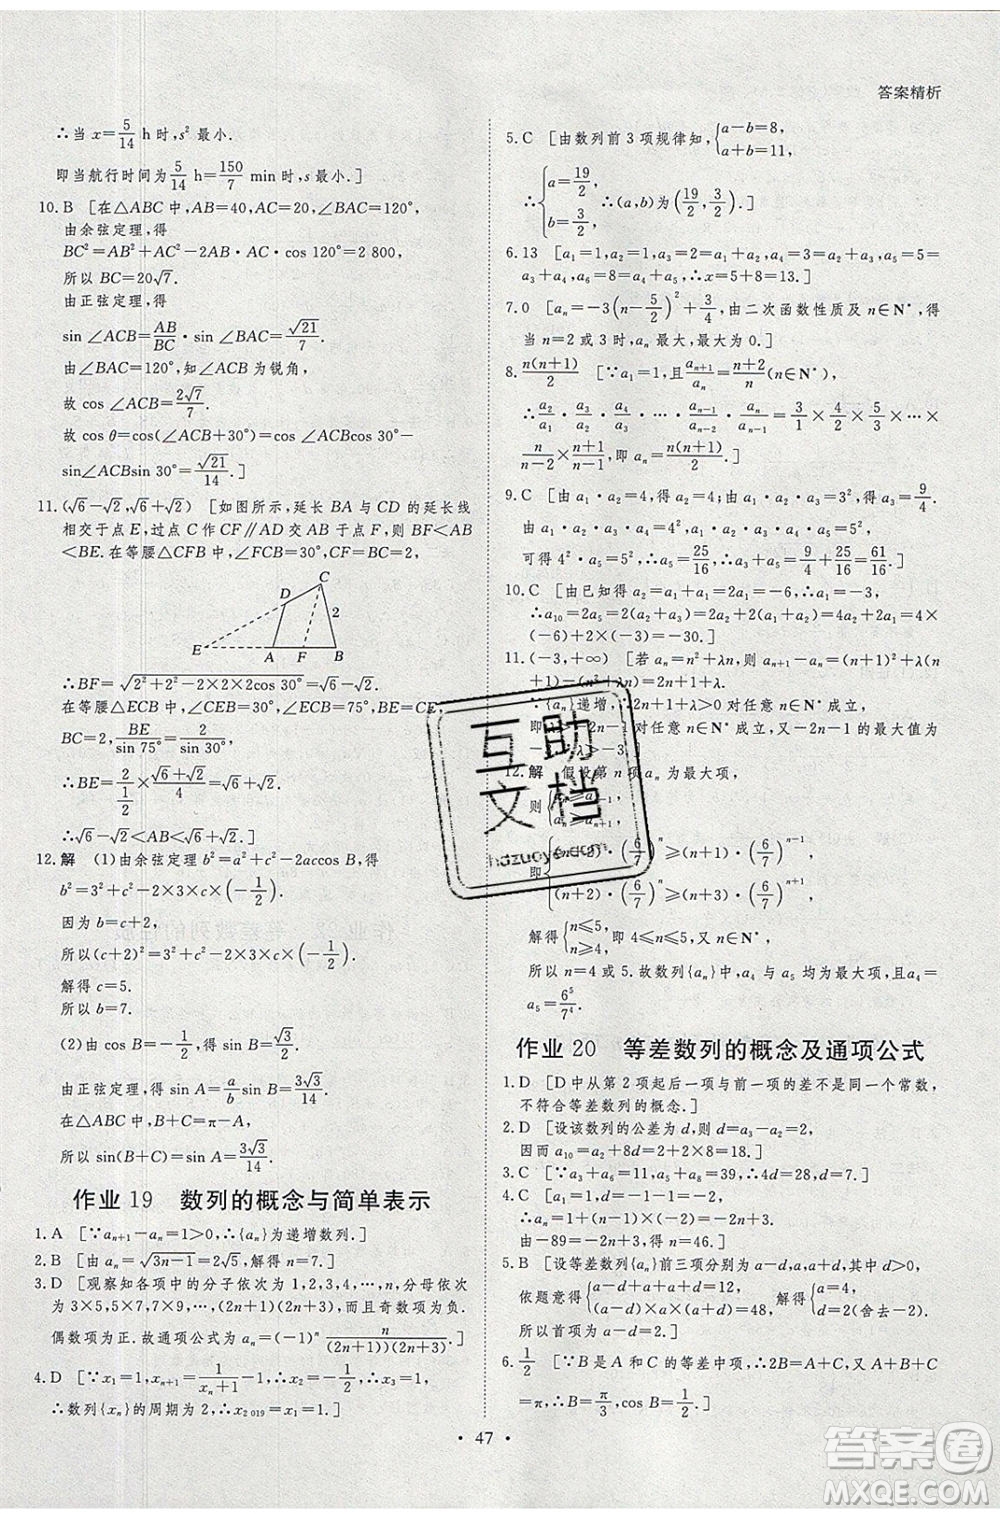 答案精析
∴当 x=5/14 h 时,s²最小.
即当航行时间为 5/14 h=150/7 min 时,s 最小.]
10.B [在△ABC 中,AB=40,AC=20,∠BAC=120°,
由余弦定理,得
BC²=AB²+AC²-2AB·AC·cos 120°=2 800,
所以 BC=20√7.
由正弦定理,得
sin∠ACB=AB/BC·sin∠BAC=√21/7.
由∠BAC=120°,知∠ACB 为锐角,
故 cos∠ACB=2√7/7.
故 cos θ=cos(∠ACB+30°)=cos∠ACBcos 30°-
sin∠ACBsin 30°=√21/14.]
11.(√6-√2,√6+√2) [如图所示,延长 BA 与 CD 的延长线
相交于点 E,过点 C 作 CF∥AD 交 AB 于点 F,则 BF<AB
<BE.在等腰△CFB 中,∠FCB=30°,CF=BC=2,
C
D
2
E
A F B
∴BF=√(2²+2²-2×2×2cos 30°)=√6-√2.
在等腰△ECB 中,∠CEB=30°,∠ECB=75°,BE=CE,
BC=2,BE/sin 75°=2/sin 30°,
∴BE=2/(1/2)×(√6+√2)/4=√6+√2.
∴√6-√2<AB<√6+√2.]
12.解 (1)由余弦定理 b²=a²+c²-2accos B,得
b²=3²+c²-2×3×c×(-1/2).
因为 b=c+2,
所以(c+2)²=3²+c²-2×3×c×(-1/2).
解得 c=5.
所以 b=7.
(2)由 cos B=-1/2,得 sin B=√3/2.
由正弦定理得 sin A=a/b sin B=3√3/14.
在△ABC 中,B+C=π-A,
所以 sin(B+C)=sin A=3√3/14.
作业 19 数列的概念与简单表示
1.A [∵aₙ₊₁-aₙ=1>0,∴{aₙ}为递增数列.]
2.B [由 aₙ=√(3n-1)=2√5,解得 n=7.]
3.D [观察知各项中的分子依次为 1,2,3,4,…,n,分母依次
为 3×5,5×7,7×9,…,(2n+1)(2n+3),而且奇数项为负.
偶数项为正.故通项公式 aₙ=(-1)ⁿ n/((2n+1)(2n+3)).]
4.D [∵x₁=1,xₙ₊₁=1/(xₙ+1)-1,∴x₂=-1/2,x₃=1,
∴数列{xₙ}的周期为 2,∴x₂ ₀₁₉=x₁=1.]
5.C [由数列前 3 项规律知,{a-b=8, a+b=11,
∴{a=19/2, b=3/2, ∴(a,b)为(19/2,3/2).]
6.13 [a₁=1,a₂=1,a₃=a₁+a₂=2,a₄=a₂+a₃=3,a₅
=a₃+a₄=5,a₆=8=a₄+a₅,∴x=5+8=13.]
7.0 [aₙ=-3(n-5/2)²+3/4,由二次函数性质及 n∈N*,得
当 n=2 或 3 时,aₙ 最大,最大为 0.]
8.n(n+1)/2 [∵a₁=1,且aₙ₊₁/aₙ=(n+2)/n(n∈N*),
∴a₂/a₁·a₃/a₂·a₄/a₃·…·aₙ₋₁/aₙ₋₂·aₙ/aₙ₋₁=3/1×4/2×5/3×…×
n/(n-2)×(n+1)/(n-1)=n(n+1)/2,即 aₙ=n(n+1)/2.]
9.C [由 a₁·a₂·a₃=3²,a₁·a₂=2²,得 a₃=9/4.
由 a₁·a₂·a₃·a₄=4²,a₁·a₂·a₃·a₄·a₅=5²,
可得 4²·a₅=5²,∴a₅=25/16,∴a₃+a₅=9/4+25/16=61/16.]
10.C [由已知得 a₂=a₁+a₁=2a₁=-6,∴a₁=-3.
∴a₁₀=2a₅=2(a₂+a₃)=2a₂+2(a₁+a₂)=4a₂+2a₁=4×
(-6)+2×(-3)=-30.]
11.(-3,+∞) [若 aₙ=n²+λn,则 aₙ₊₁-aₙ=(n+1)²+λ(n
+1)-n²-λn=2n+1+λ.
∵{aₙ}递增,∴2n+1+λ>0 对任意 n∈N*成立,
即 λ>-2n-1 对任意 n∈N*成立,又-2n-1 的最大值为
-3,∴λ>-3.]
12.解 假设第 n 项 aₙ 为最大项,
则{aₙ≥aₙ₋₁, aₙ≥aₙ₊₁,
(6/7)ⁿ≥n·(6/7)ⁿ⁻¹,
即
解得{n≤5, n≥4, 即 4≤n≤5,又 n∈N*,
所以 n=4 或 5.故数列{aₙ}中,a₄ 与 a₅ 均为最大项,a₄=
a₅=6⁵/7⁴.
作业 20 等差数列的概念及通项公式
1.D [D中从第 2 项起后一项与前一项的差不是同一个常数,
不符合等差数列的概念.]
2.D [设该数列的公差为 d,则 d=a₃-a₂=2,
因而 a₁₀=a₂+8d=2+8×2=18.]
3.C [∵a₃+a₉=a₄+a₈=2a₆,∴2a₆=54-2a₆,∴a₆=
4.C [∵a₁=1,d=-1-1=-2,
∴aₙ=1+(n-1)·(-2)=-2n+3.
由-89=-2n+3,得 n=46.]
5.B [设等差数列{aₙ}前三项分别为 a-d,a,a+d,d>0,
依题意得{a-d+a+a+d=12, a(a-d)(a+d)=48, 解得{a=4, d=2(舍去-2).
所以首项为 a-d=2.]
6.1/2 [∵B 是 A 和 C 的等差中项,∴2B=A+C,又 A+C
=π-B,∴2B=π-B,∴B=π/3,∴cos B=1/2.]
• 47 •
互助
文档
hdzuoye.com
答案圈
MXQE.COM